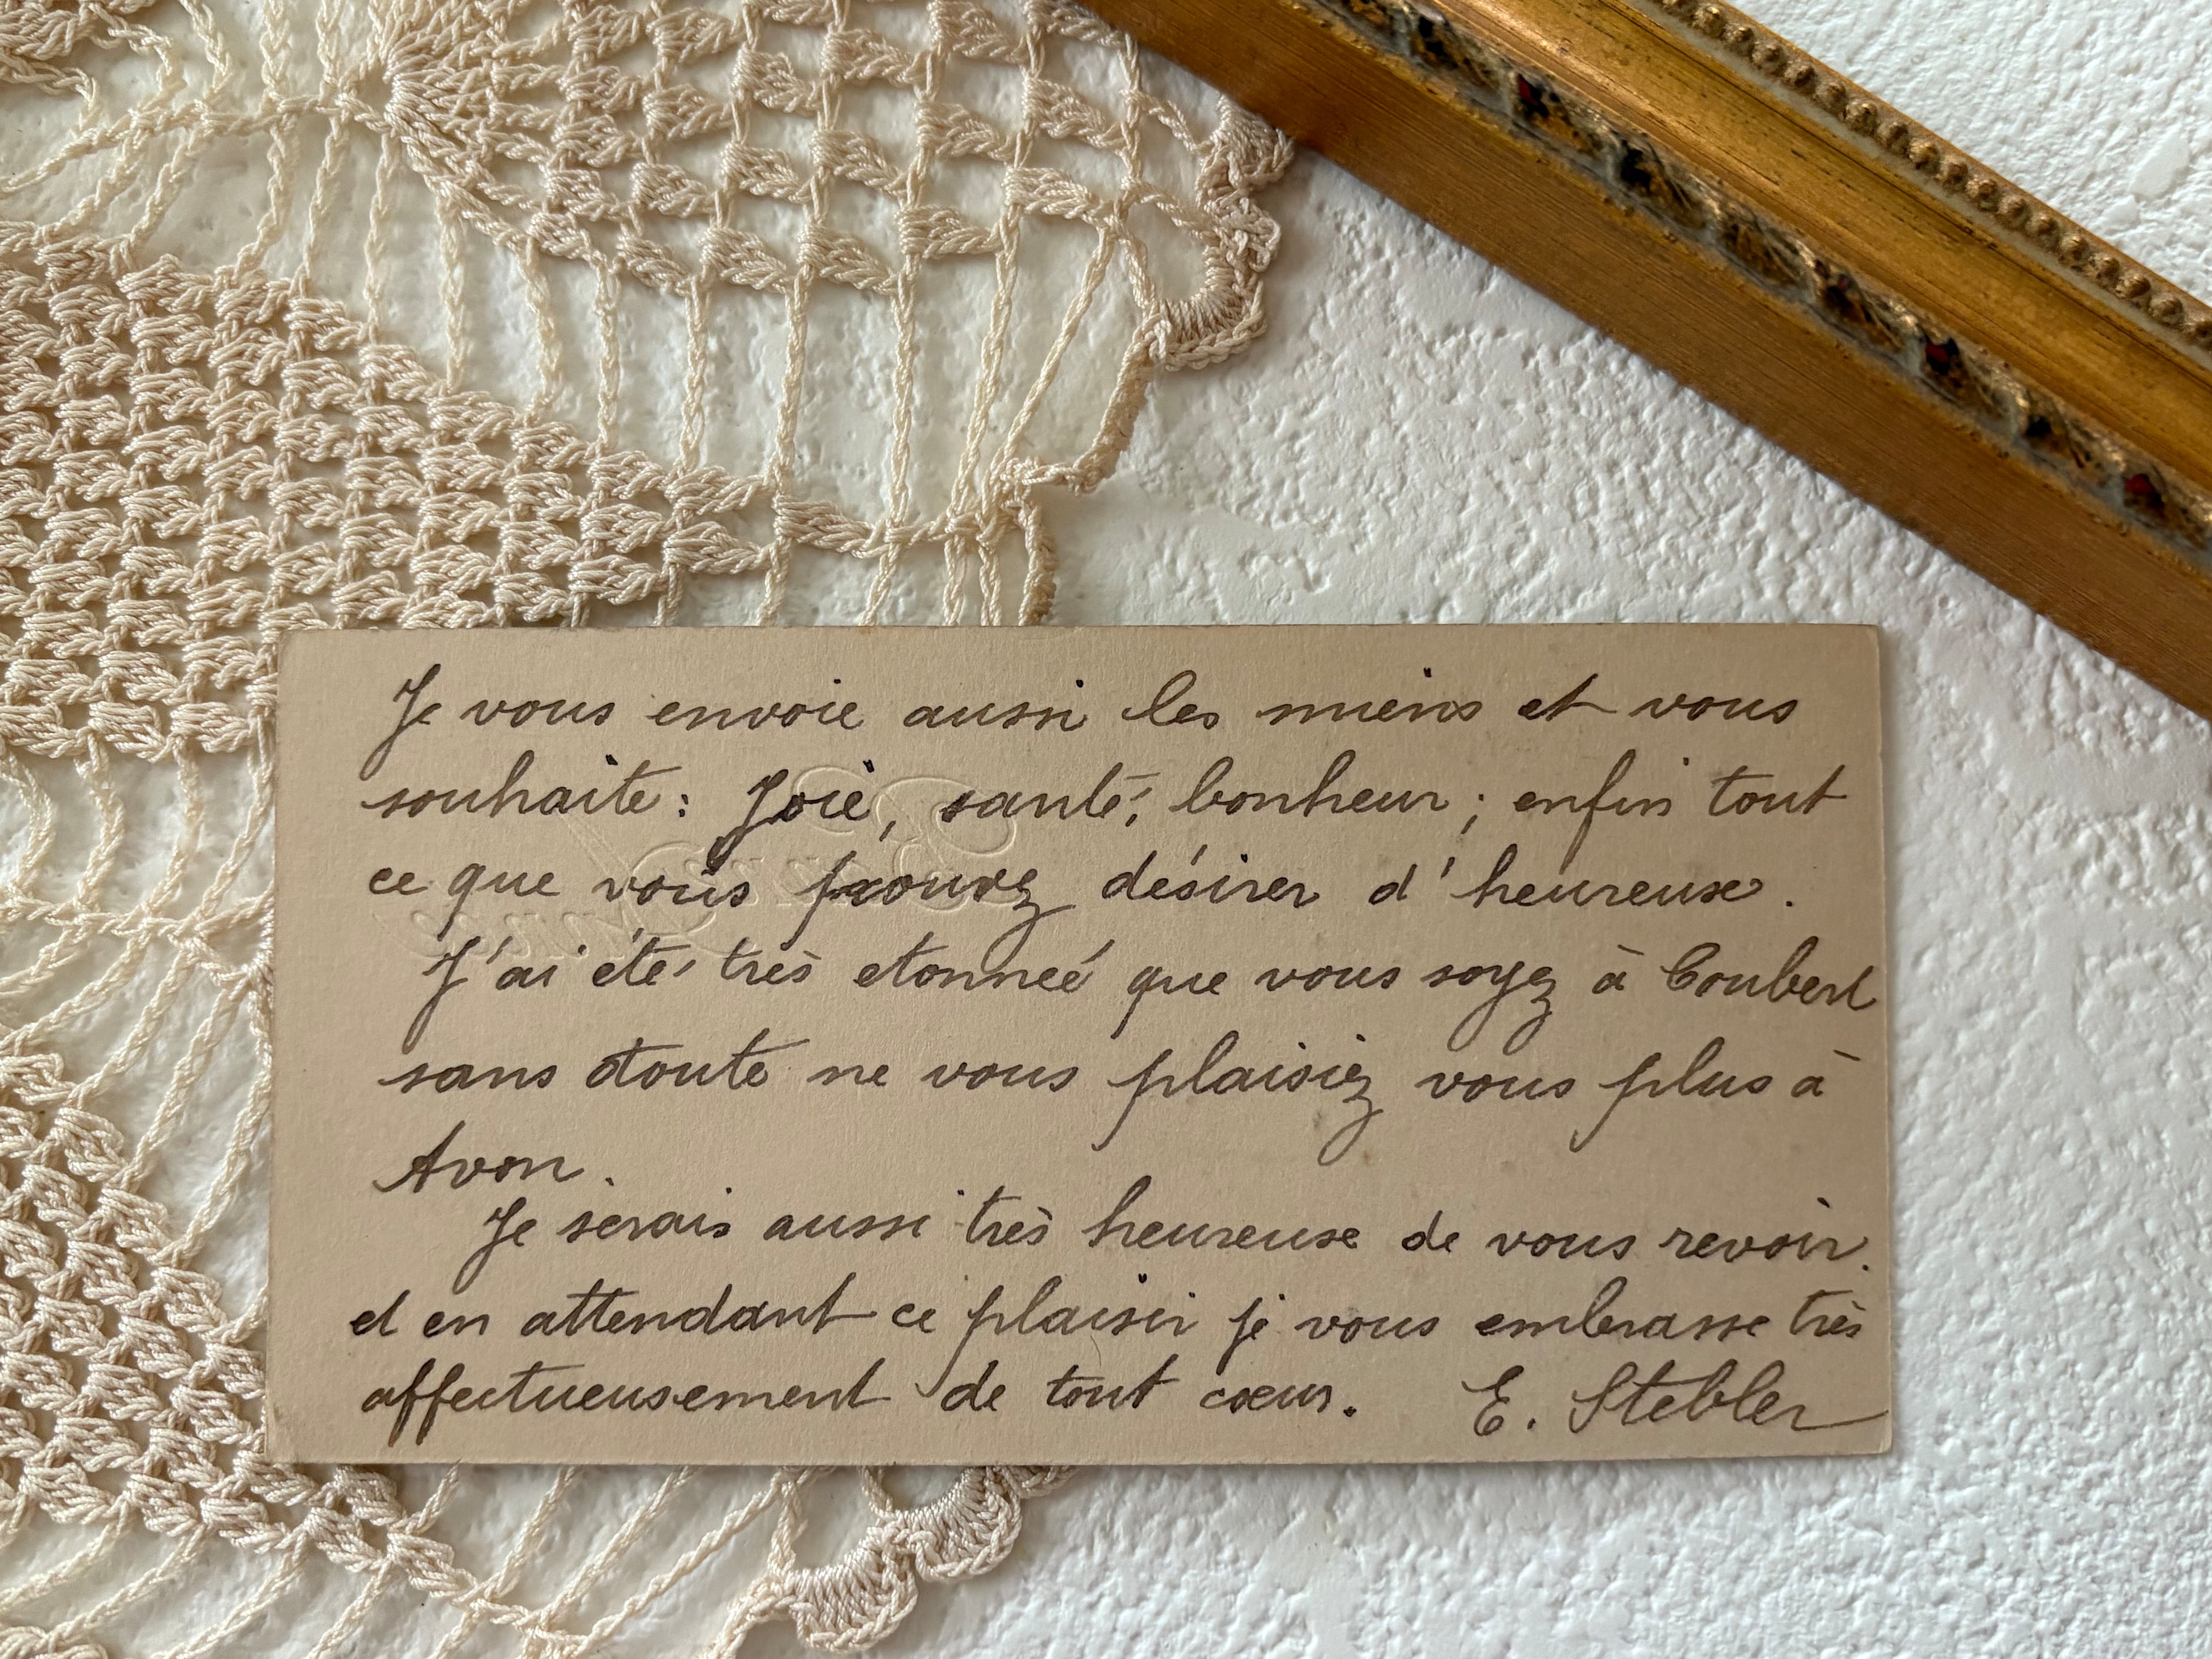 Je vous envoie aussi les miens et vous
souhaite : Joie, santé, bonheur ; enfin tout
ce que vous pouvez désirer d'heureuse.
J'ai été très etonneé que vous soyez à Coubert
sans doute ne vous plaisiez vous plus à
Avon.
Je serais aussi très heureuse de vous revoir.
et en attendant ce plaisir je vous embrasse très
affectueusement de tout cœur. E. Stebler